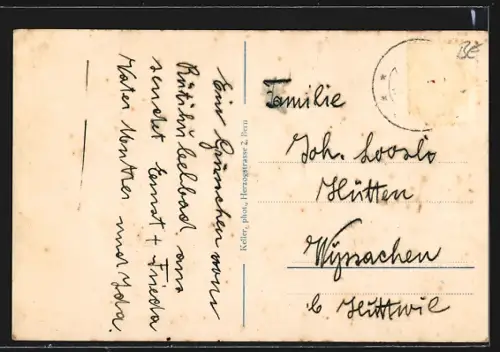 Ein Grüsschen vom
Rütihubelbad, aus
sendet Ernst + Frieda
Vater Mutter und Ida.
Keller, phot., Herzogstrasse 2, Bern
Familie
Joh. Loosli
Hütten
Wyssachen
b Huttwil
BE